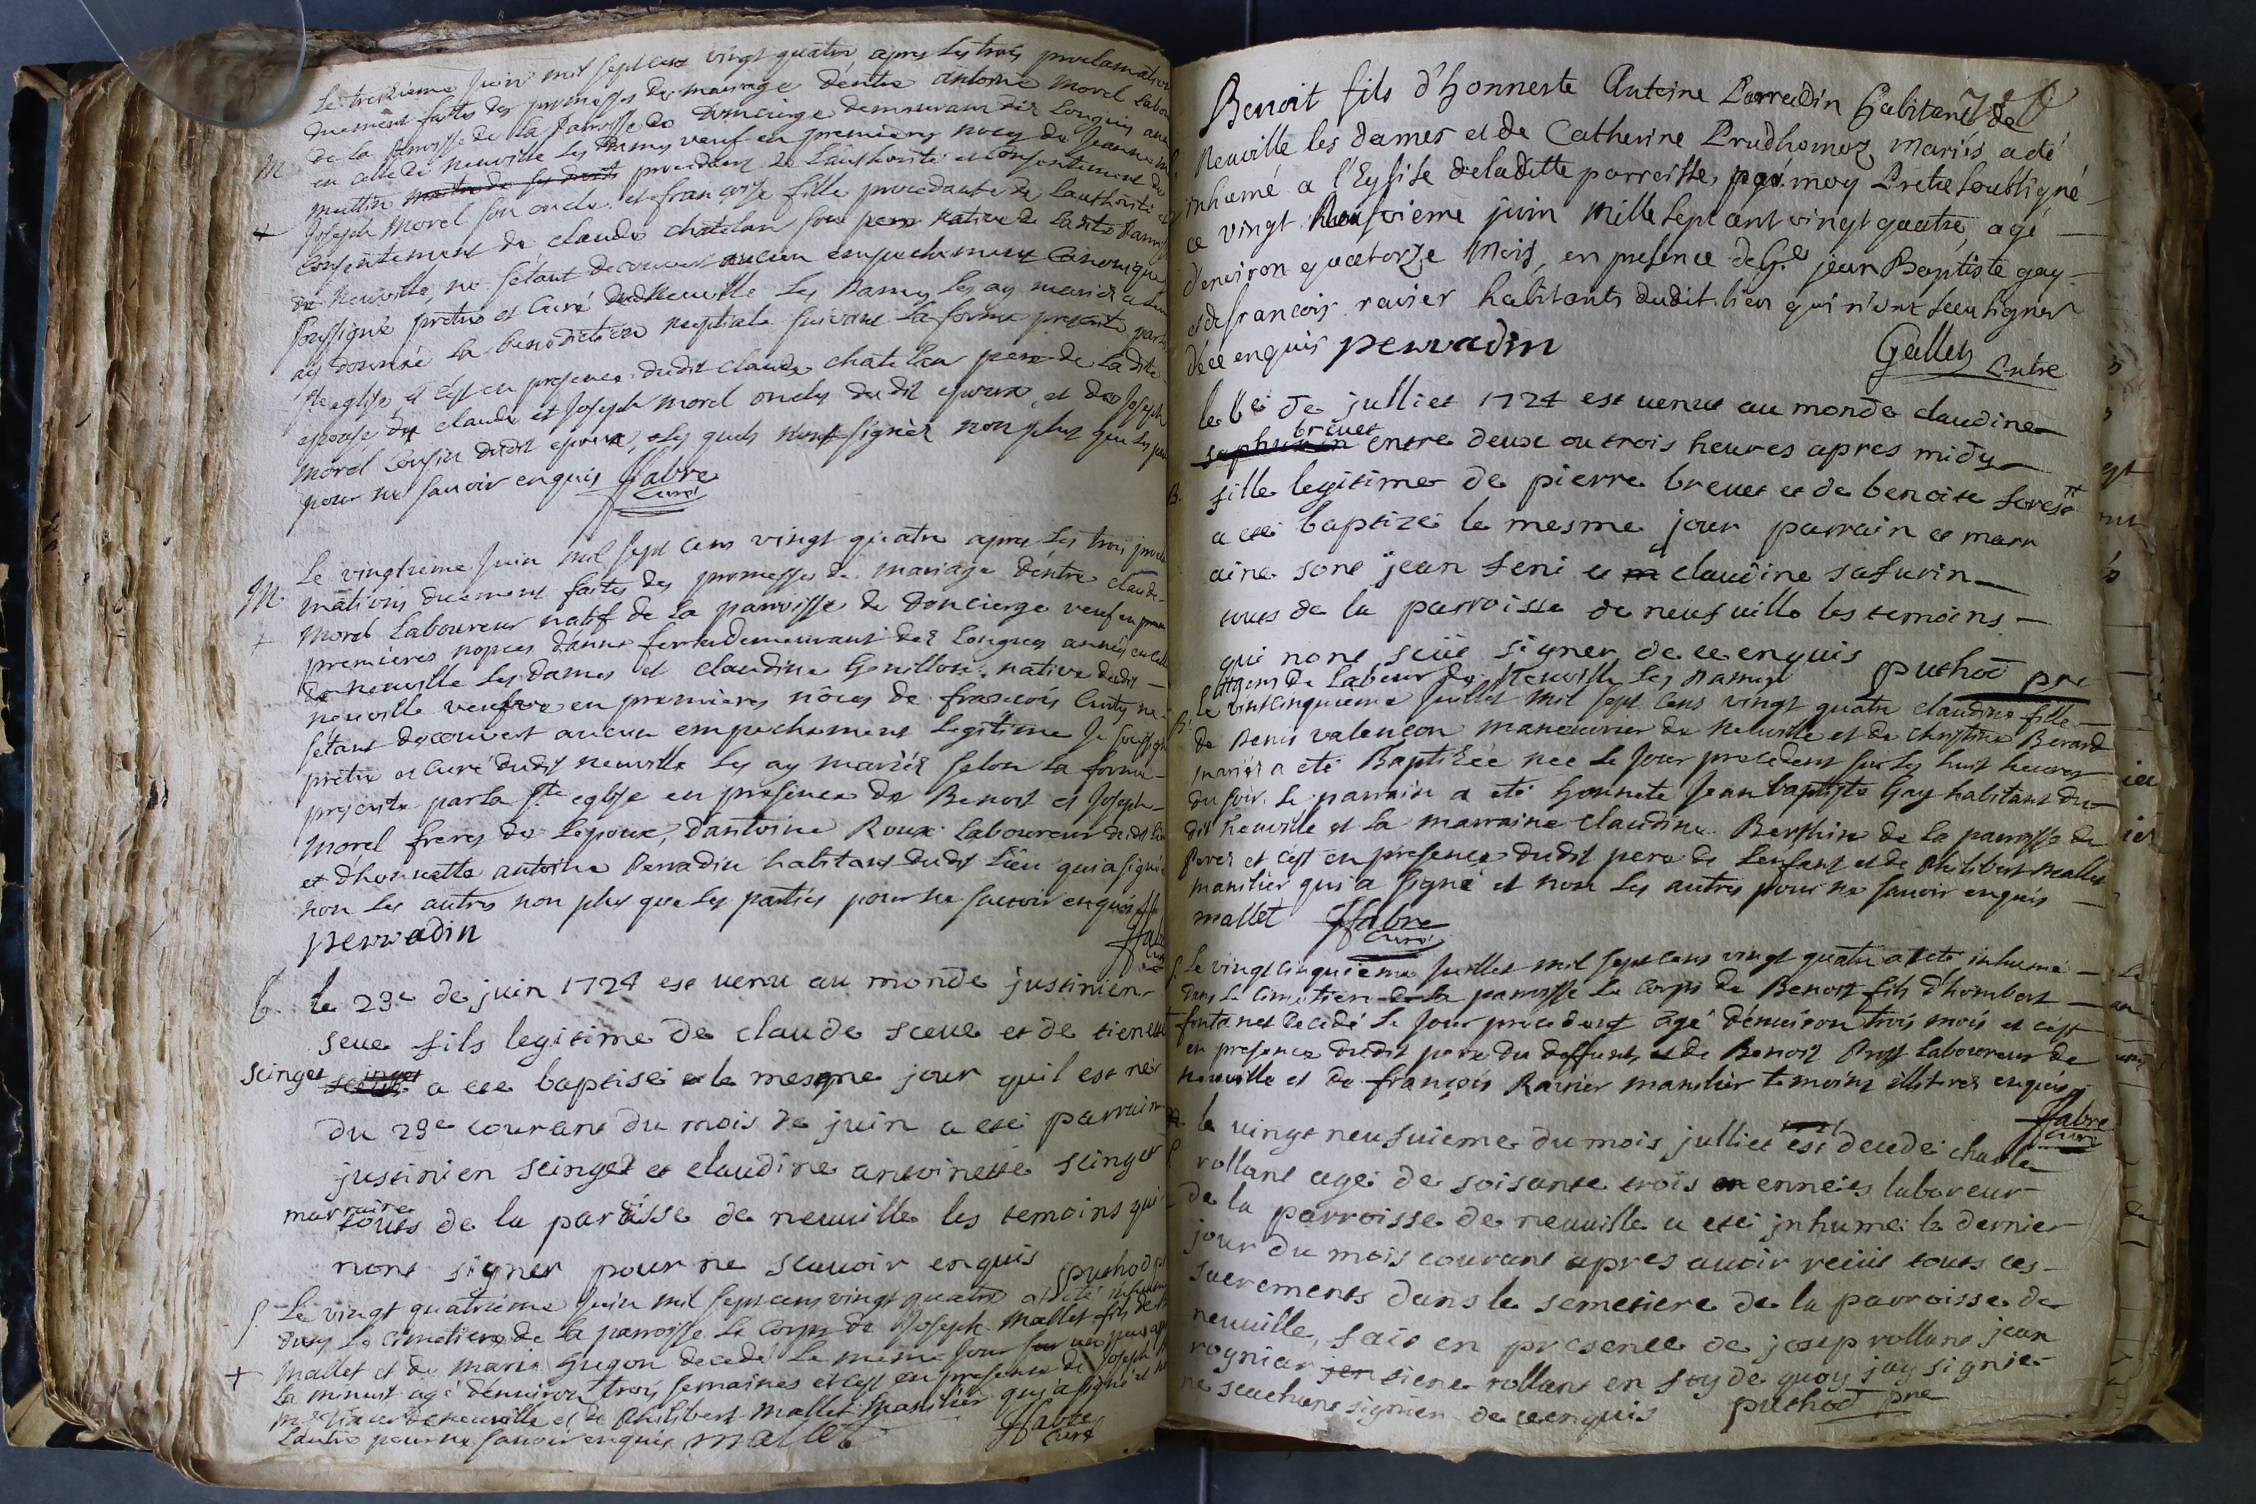 Le treizième Juin mil sept cens vingt quatre, apres les trois proclamations
duement faites des promesses de mariage dentre antoine morel
de la paroisse de Doncierge demeurant dez Longues
M en celle de neuville les dames veuf en premieres noces de Jeanne
muttin procedant de L'authorité et consentement de
+ Joseph morel son oncle et francoise fille procedante de L'authorité et
consentement de claude chatelan son pere native de La dite
de neuville, ne s'étant decouvert aucun empechement Canonique
soussigné prêtre et Curé dud neuville Les Dames les ay mariés
ay donné La benediction nuptiale suivant La forme prescrite par la
Ste eglise et c'est en presence dudit claude chatelan pere de La dite
epouse, de claude et Joseph morel oncles du dit epoux, et de Joseph
morel Cousin dudit epoux, Les quels n'ont signéz non plus que les
pour ne savoir enquis ffabre
curé
Le vingtième Juin mil sept cens vingt quatre apres Les trois procla
M mations duement faites des promesses de mariage dentre claude
+ morel Laboureur natif de La paroisse de Doncierge veuf en
premieres nopces d'anne demeurant dez Longues années en celle
de neuville Les dames et claudine Guillon native dudit
neuville veufve en premieres nôces de francois Curty ne
s'étant decouvert aucun empechement Legitime Je soussigné
prêtre et curé dudit neuville Les ay mariéz selon la forme
prescrite par la Ste eglise en presence de Benoit et Joseph
morel freres de L'epoux, d'antoine Roux Laboureur dudit lieu
et d'honnette antoine Perradin habitant dudit Lieu qui a signé
non Les autres non plus que Les parties pour ne savoir enquis
perradin ffabre
b. le 23e de juin 1724 est venu au monde justinien
seve fils legitime de claude sceve et de tienette
scinget a ete baptisé le mesme jour quil est né
du 23e courant du mois de juin a ete parrain
justinien scinget et claudine antoinette scinget
marraine tous de la paroisse de neuville les temoins qui
nont signer pour ne scavoir enquis puthod
S. Le vingt quatrième Juin mil sept cens vingt quatre a été inhumé
dans Le cimetiere de La paroisse Le Corps de Joseph mallet fils de
+ mallet et de marie Gugon decedé Le même jour sur
La minuit agé d'environ trois semaines et c'est en presence de Joseph
de neuville et de Philibert mallet manilier qui a signé et
L'autre pour ne savoir enquis mallet ffabre
curé
Benoit fils d'honneste Antoine Perradin habitant de
Neuville les dames et de Catherine Prudhomoz mariés a eté
inhumé a l'Eglise deladitte parroisse, par moy Pretre soubsigné
ce vingt Neufvieme juin Mille sept cent vingt quatre, agé
d'environ quatorze Mois, en presence de jean Baptiste gay
et de francois ravier habitants dudit lieu qui n'ont sceu signer
de ce enquis perradin Galley Pretre
le de julliet 1724 est venue au monde claudine
brevet
entre deux ou trois heures apres midy
B. fille legitime de pierre brevet et de benoite forest
a ete baptizé le mesme jour parrain et marr
aine sont jean feni et claudine safurin
tous de la parroisse de neufville les temoins
qui nont scüe signer de ce enquis puthod pre
Labour de Neuville Les Dames
B. Le vintcinquieme Juillet mil sept cens vingt quatre claudine fille
de Denis valençon manouvrier de neuville et de christine Berard
mariés a eté Baptizée née Le Jour precedent sur les huit heures
du soir. Le parrain a eté honnete Jean baptiste Gay habitant du
dit neuville et La marraine claudine Berthin de La paroisse de
Perez et c'est en presence dudit pere de L'enfant et de Philibert mallet
manilier qui a signé et non Les autres pour ne savoir enquis
mallet ffabre
curé
S. Le vingt cinquieme Juillet mil sept cens vingt quatre a eté inhumé
dans Le cimetiere de La paroisse Le Corps de Benoit fils d'hombert
fontanet decedé Le Jour precedent agé d'environ trois mois et c'est
en presence dudit pere du deffunt, et de Benoit Laboureur de
neuville et de françois Ravier manilier temoins illiterez enquis
ffabre
curé
le vingt neufvieme du mois julliet est decede charle
rollant agé de soisante trois enneies laboreur
de la parroisse de neuville a eté jnhumé le dernier
jour du mois courant apres avoir reciüe touts ces
sacrements dans le semetiere de la parroisse de
neuville, fait en presence de josep rollant jean
rogniar etiene rollant en foy de quoy jay signie
ne scachant signier de ce enquis puthod pre